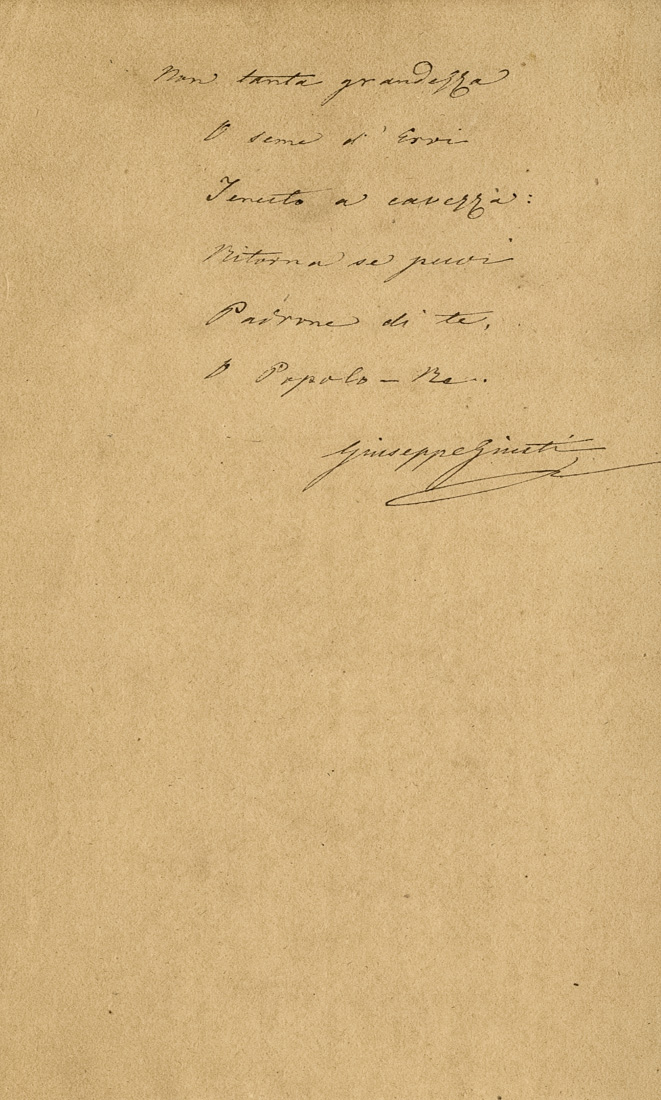 Non tanta grandezza
O seme d'Eroi
Tenuto a cavezza:
Ritorna se puoi
Padrone di te,
O Popolo-Re..
Giuseppe Giusti